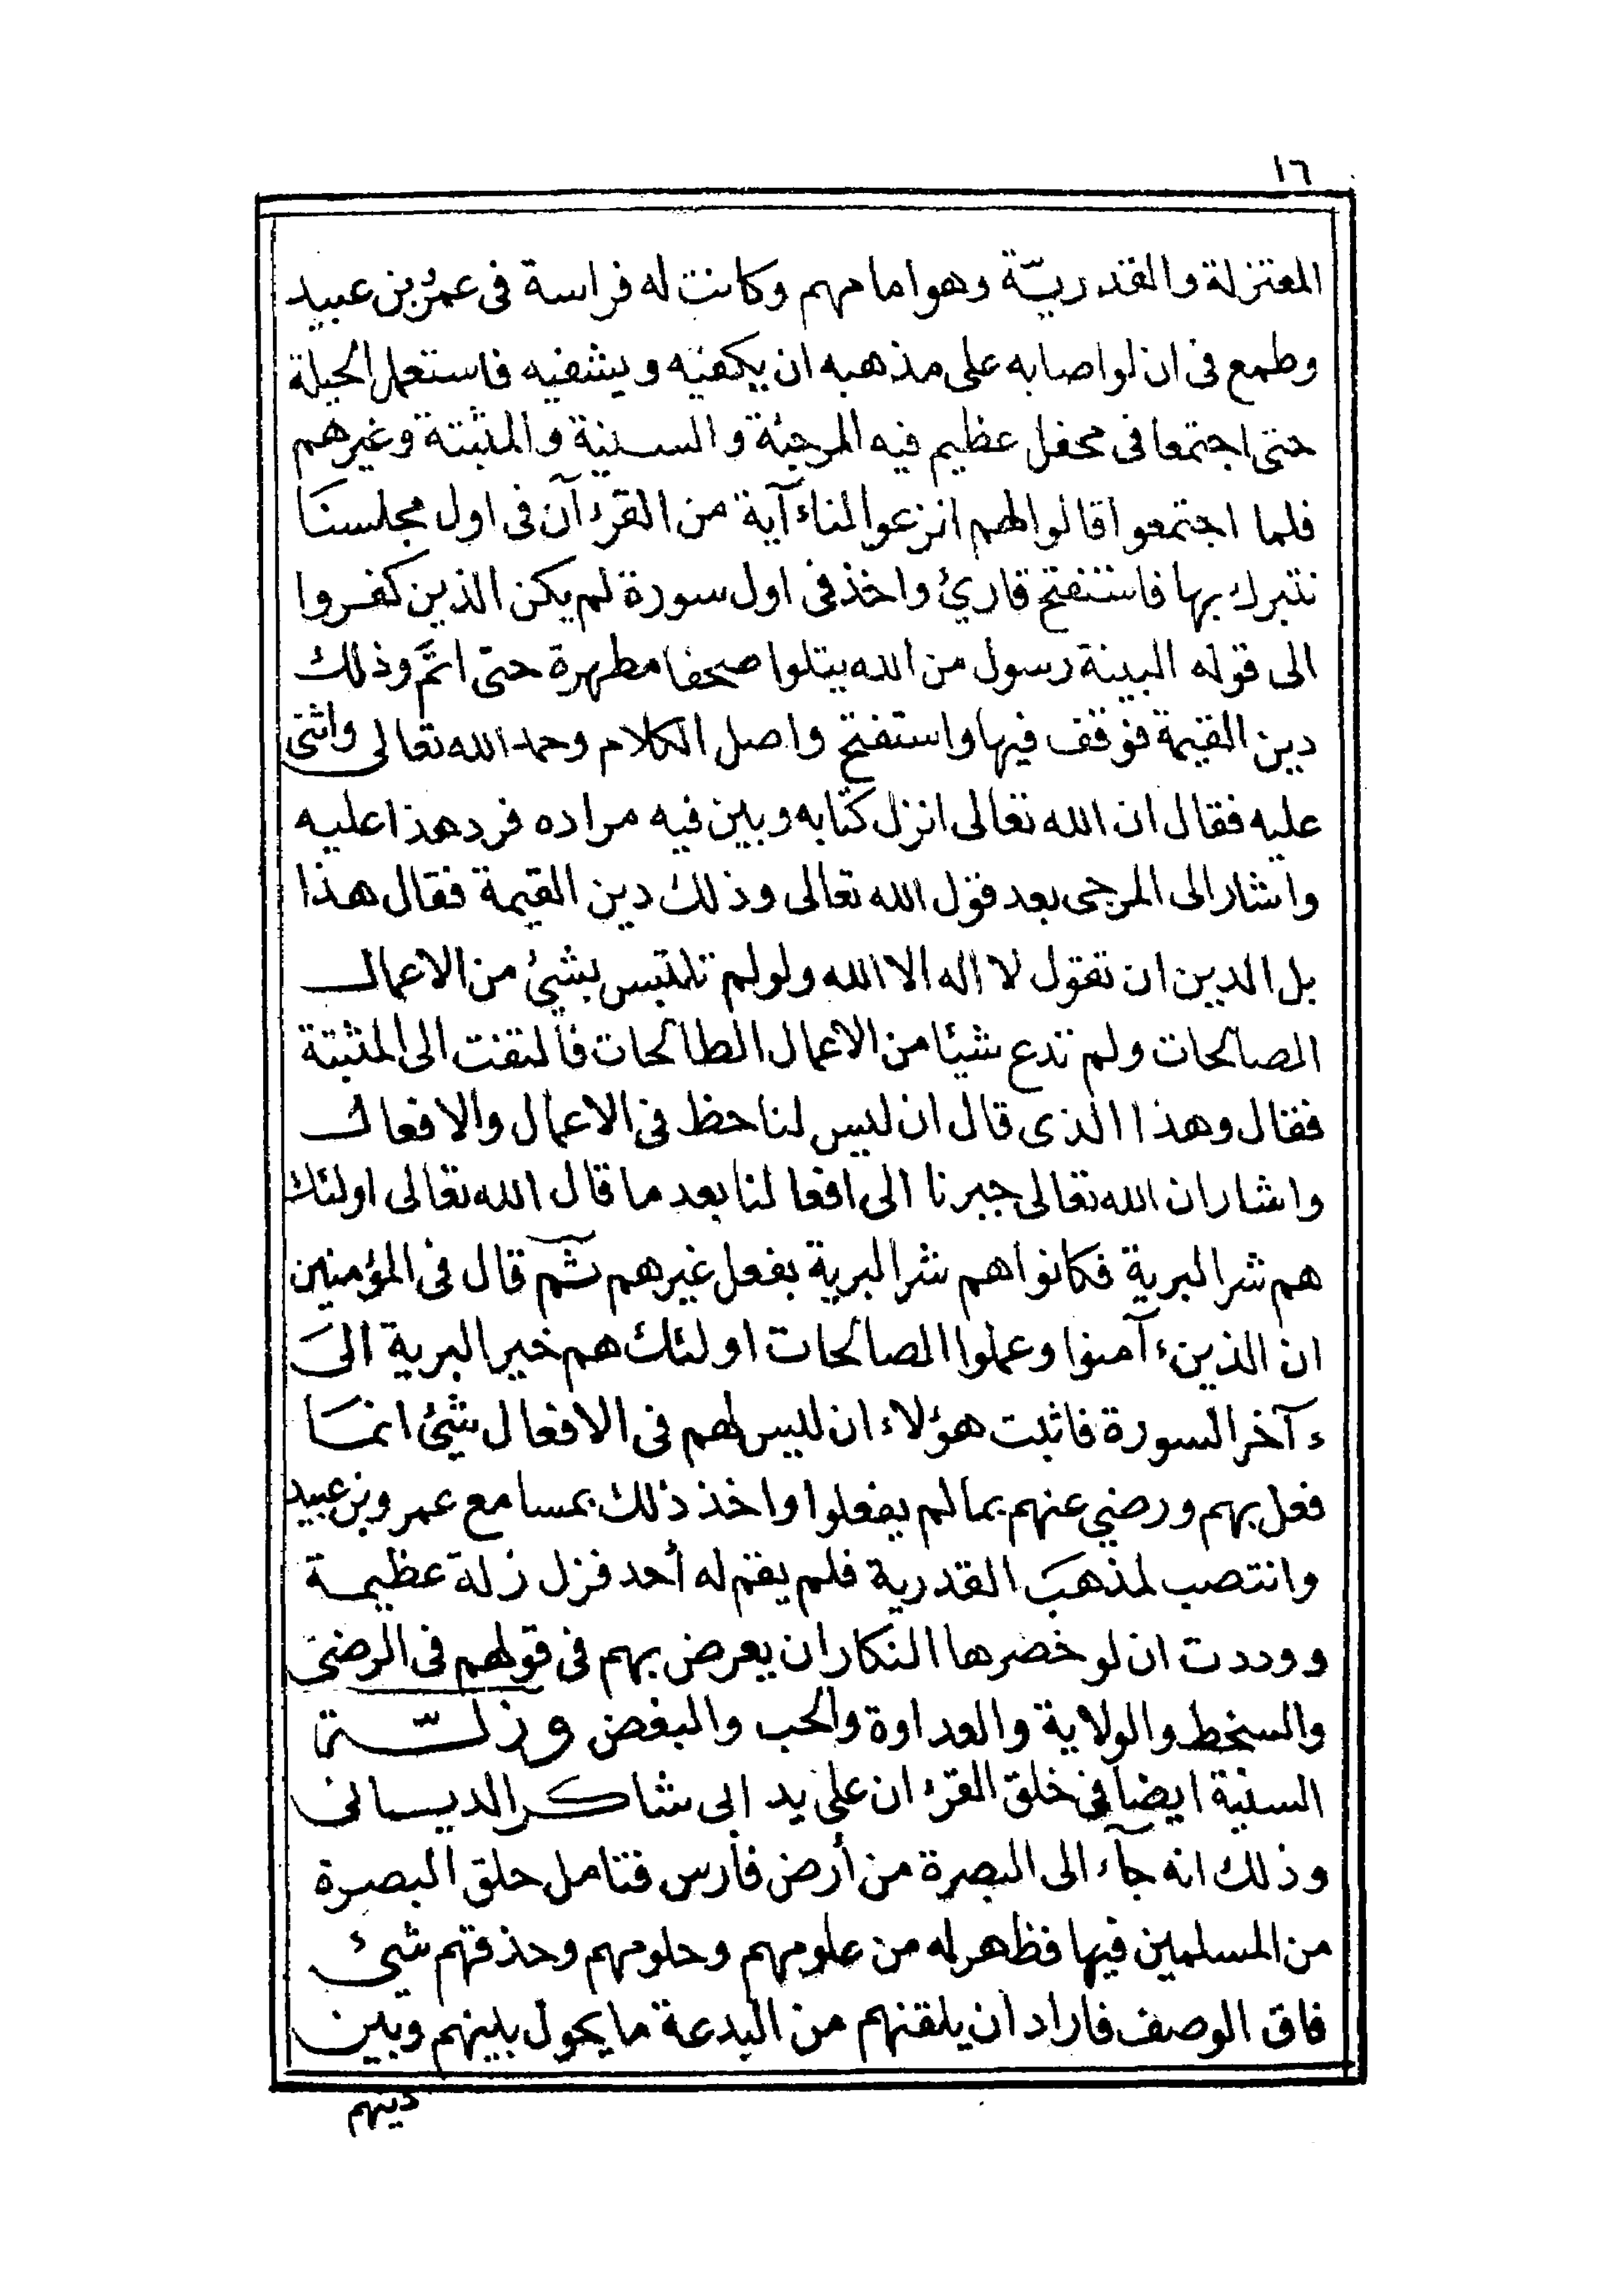 ١٦
المعتزلة والقدريّة وهو امامهم وكانت له فراسة فى عمرو بن عبيد
وطمع فى ان لو اصابه على مذهبه ان يكفيه ويشفيه فاستعمل الحيلة
حتى اجتمعا فى محفل عظيم فيه المرجئة والسنية والمثبتة وغيرهم
فلما اجتمعوا قالوا لهم انزعوا لناء آية من القرءآن فى اول مجلسنا
نتبرك بها فاستفتح قارئ واخذ فى اول سورة لم يكن الذين كفروا
الى قوله البينة رسول من الله يتلوا صحفا مطهرة حتى اتمّ وذلك
دين القيمة فوقف فيها واستفتح واصل الكلام وحمد الله تعالى واثنى
عليه فقال ان الله تعالى انزل كتابه وبين فيه مراده فرد هذا عليه
واشار الى المرجى بعد قول الله تعالى وذلك دين القيمة فقال هذا
بل الدين ان تقول لا اله الا الله ولو لم تلتبس بشئ من الاعمال
الصالحات ولم تدع شيئا من الاعمال الطالحات فالتفت الى المثبتة
فقال وهذا الذى قال ان ليس لنا حظ فى الاعمال والافعال
واشار ان الله تعالى جبرنا الى افعالنا بعد ما قال الله تعالى اولئك
هم شر البرية فكانوا هم شر البرية بفعل غيرهم ثم قال فى المؤمنين
ان الذينء آمنوا وعملوا الصالحات اولئك هم خير البرية الى
ءآخر السورة فاثبت هؤلاء ان ليس لهم فى الافعال شئ انما
فعل بهم ورضي عنهم بما لم يفعلوا واخذ ذلك بمسامع عمرو بن عبيد
وانتصب لمذهب القدرية فلم يقم له أحد فزل زلة عظيمة
ووددت ان لو خضرها النكار ان يعرض بهم فى قولهم فى الرضى
والسخط والولاية والعداوة والحب والبغض وزلّة
السنية ايضا فى خلق القرءان على يد ابى شاكر الديسانى
وذلك انه جآء الى البصرة من أرض فارس فتامل حلق البصرة
من المسلمين فيها فظهر له من علومهم وحلومهم وحذقهم شئ
فاق الوصف فاراد ان يلقنهم من البدعة ما يحول بينهم وبين
دينهم